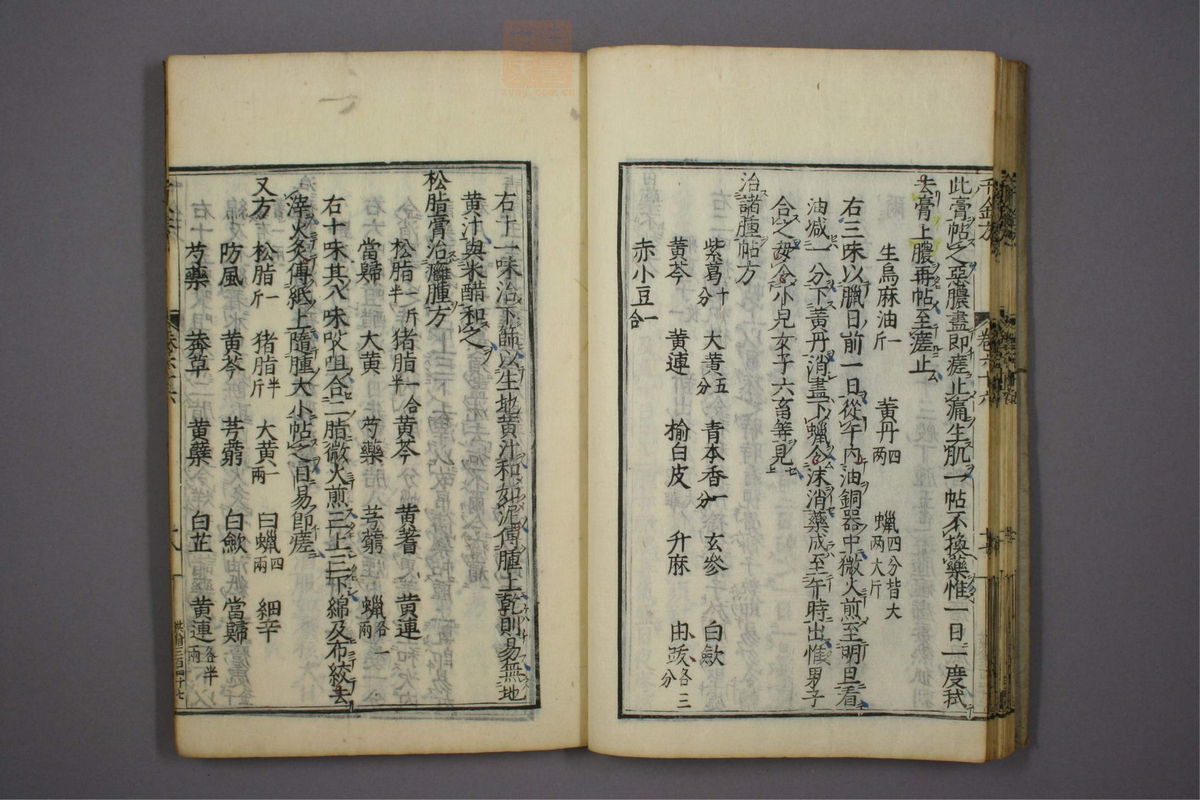 千金方
卷六十六
此膏帖之惡膿盡即瘥止痛生肌一帖不換藥惟一日一度拭
去膏上膿再帖至瘥止
生烏麻油一斤 黃丹四兩 蠟四分皆大兩大斤
右三味以臘日前一日從午內油銅器中微火煎至明旦看
油減一分下黃丹消盡下蠟令沫消藥成至午時出惟男子
合之毋令小兒女子六畜等見
治諸腫帖方
紫葛十分 大黃五分 青木香一分 玄參 白斂
黃芩 黃連 榆白皮 升麻 由跋各三分
赤小豆一合
右十一味治下篩以生地黃汁和如泥傅腫上乾則易無地
黃汁與米醋和之
松脂膏治癰腫方
松脂一斤半 猪脂一合半 黃芩 黃蓍 黃連
當歸 大黃 芍藥 芎藭 蠟各一兩
右十味其八味㕮咀合二脂微火煎三上三下綿及布絞去
滓火炙傅紙上隨腫大小帖之日易即瘥
又方 松脂一斤 猪脂半斤 大黃一兩 白蠟四兩 細辛
防風 黃芩 芎藭 白斂 當歸
芍藥 莽草 黃蘗 白芷 黃連各半兩